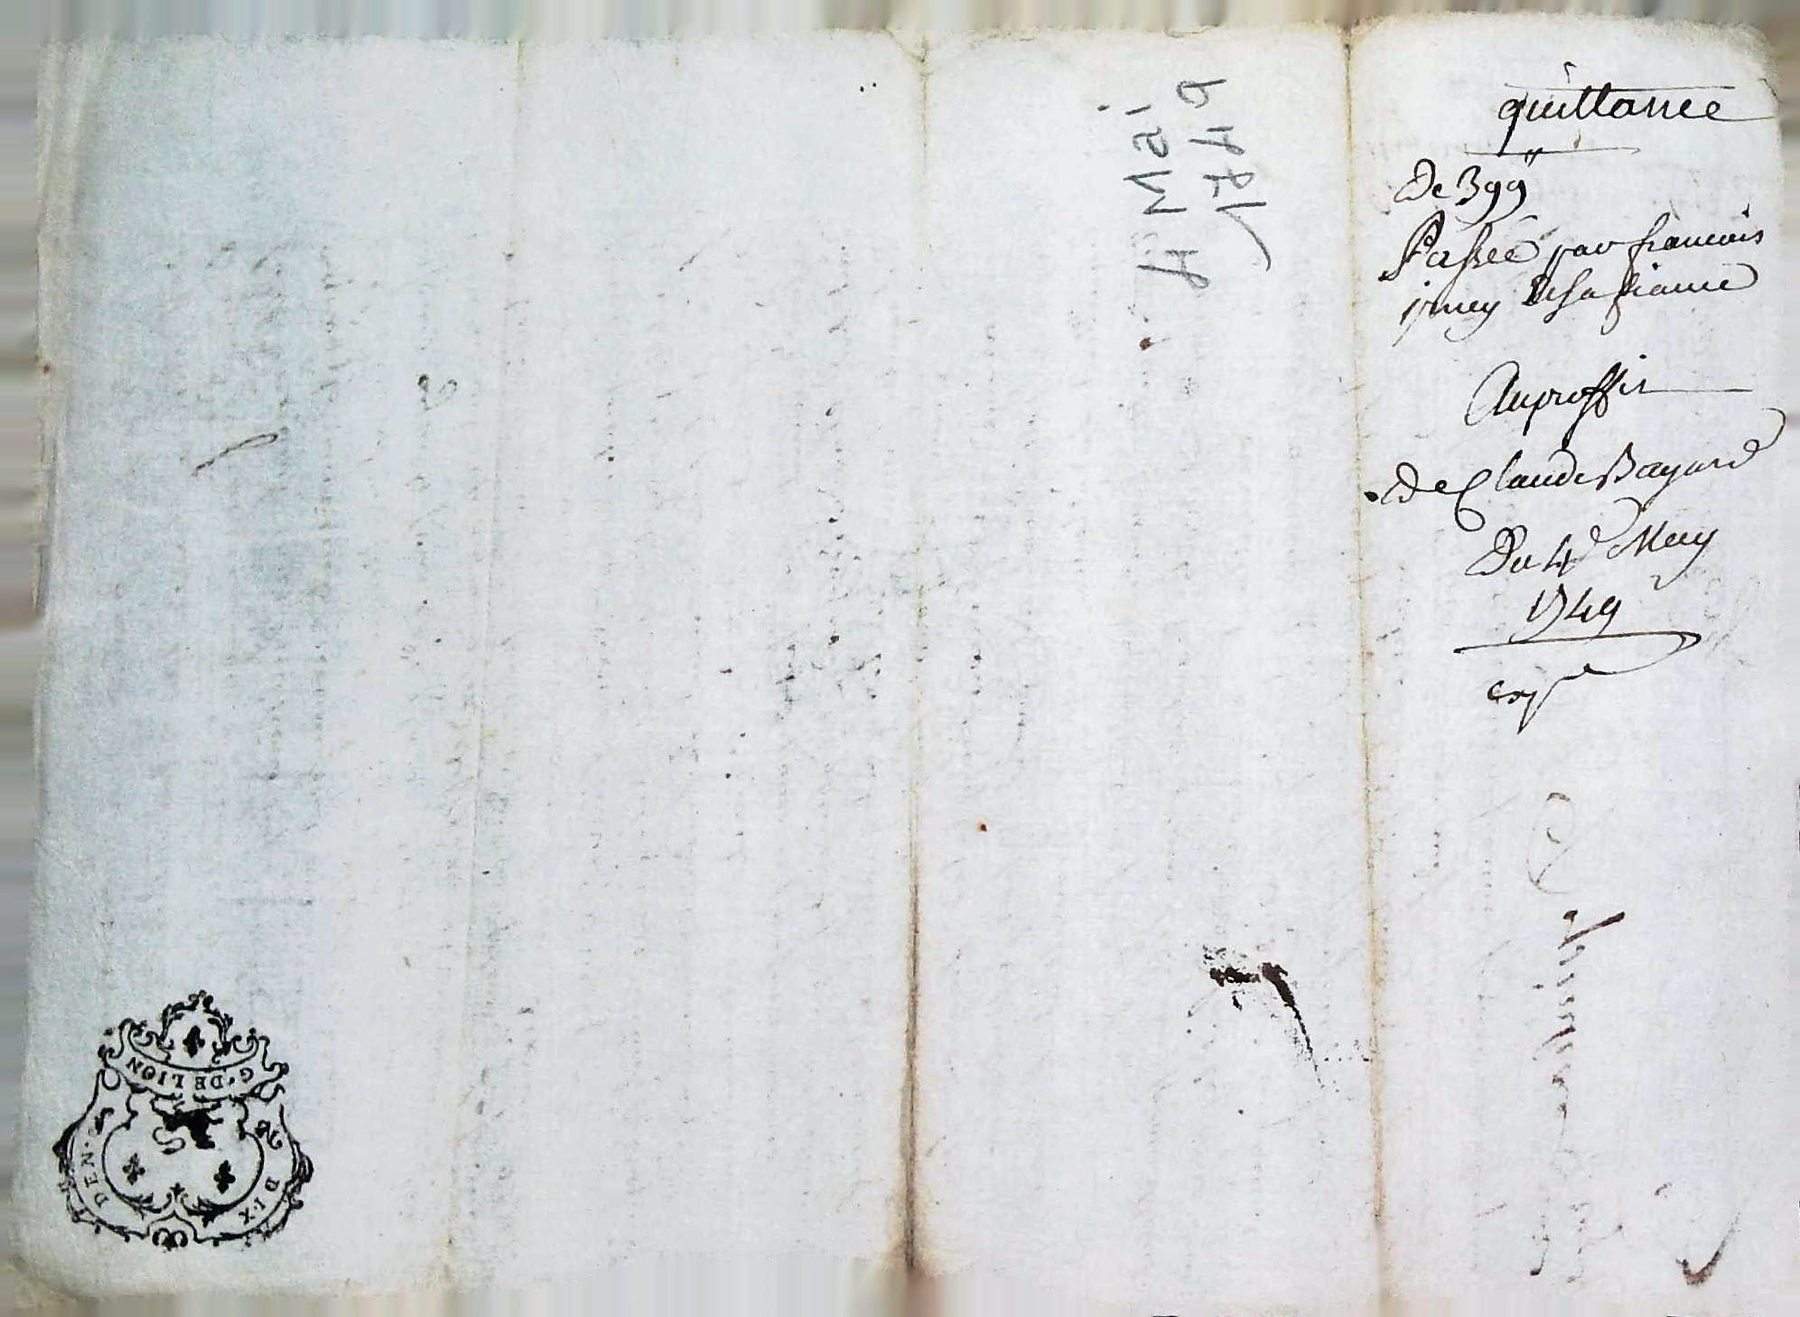 quittance
De 399ᵗᵗ
Passée par francois
jpmey & sa fiancé
Auproffit
De Claude Bayard
Du 4ᵉ May
1749
expᵉ
4 Mai
1749
G. DE LION
DIX DEN.